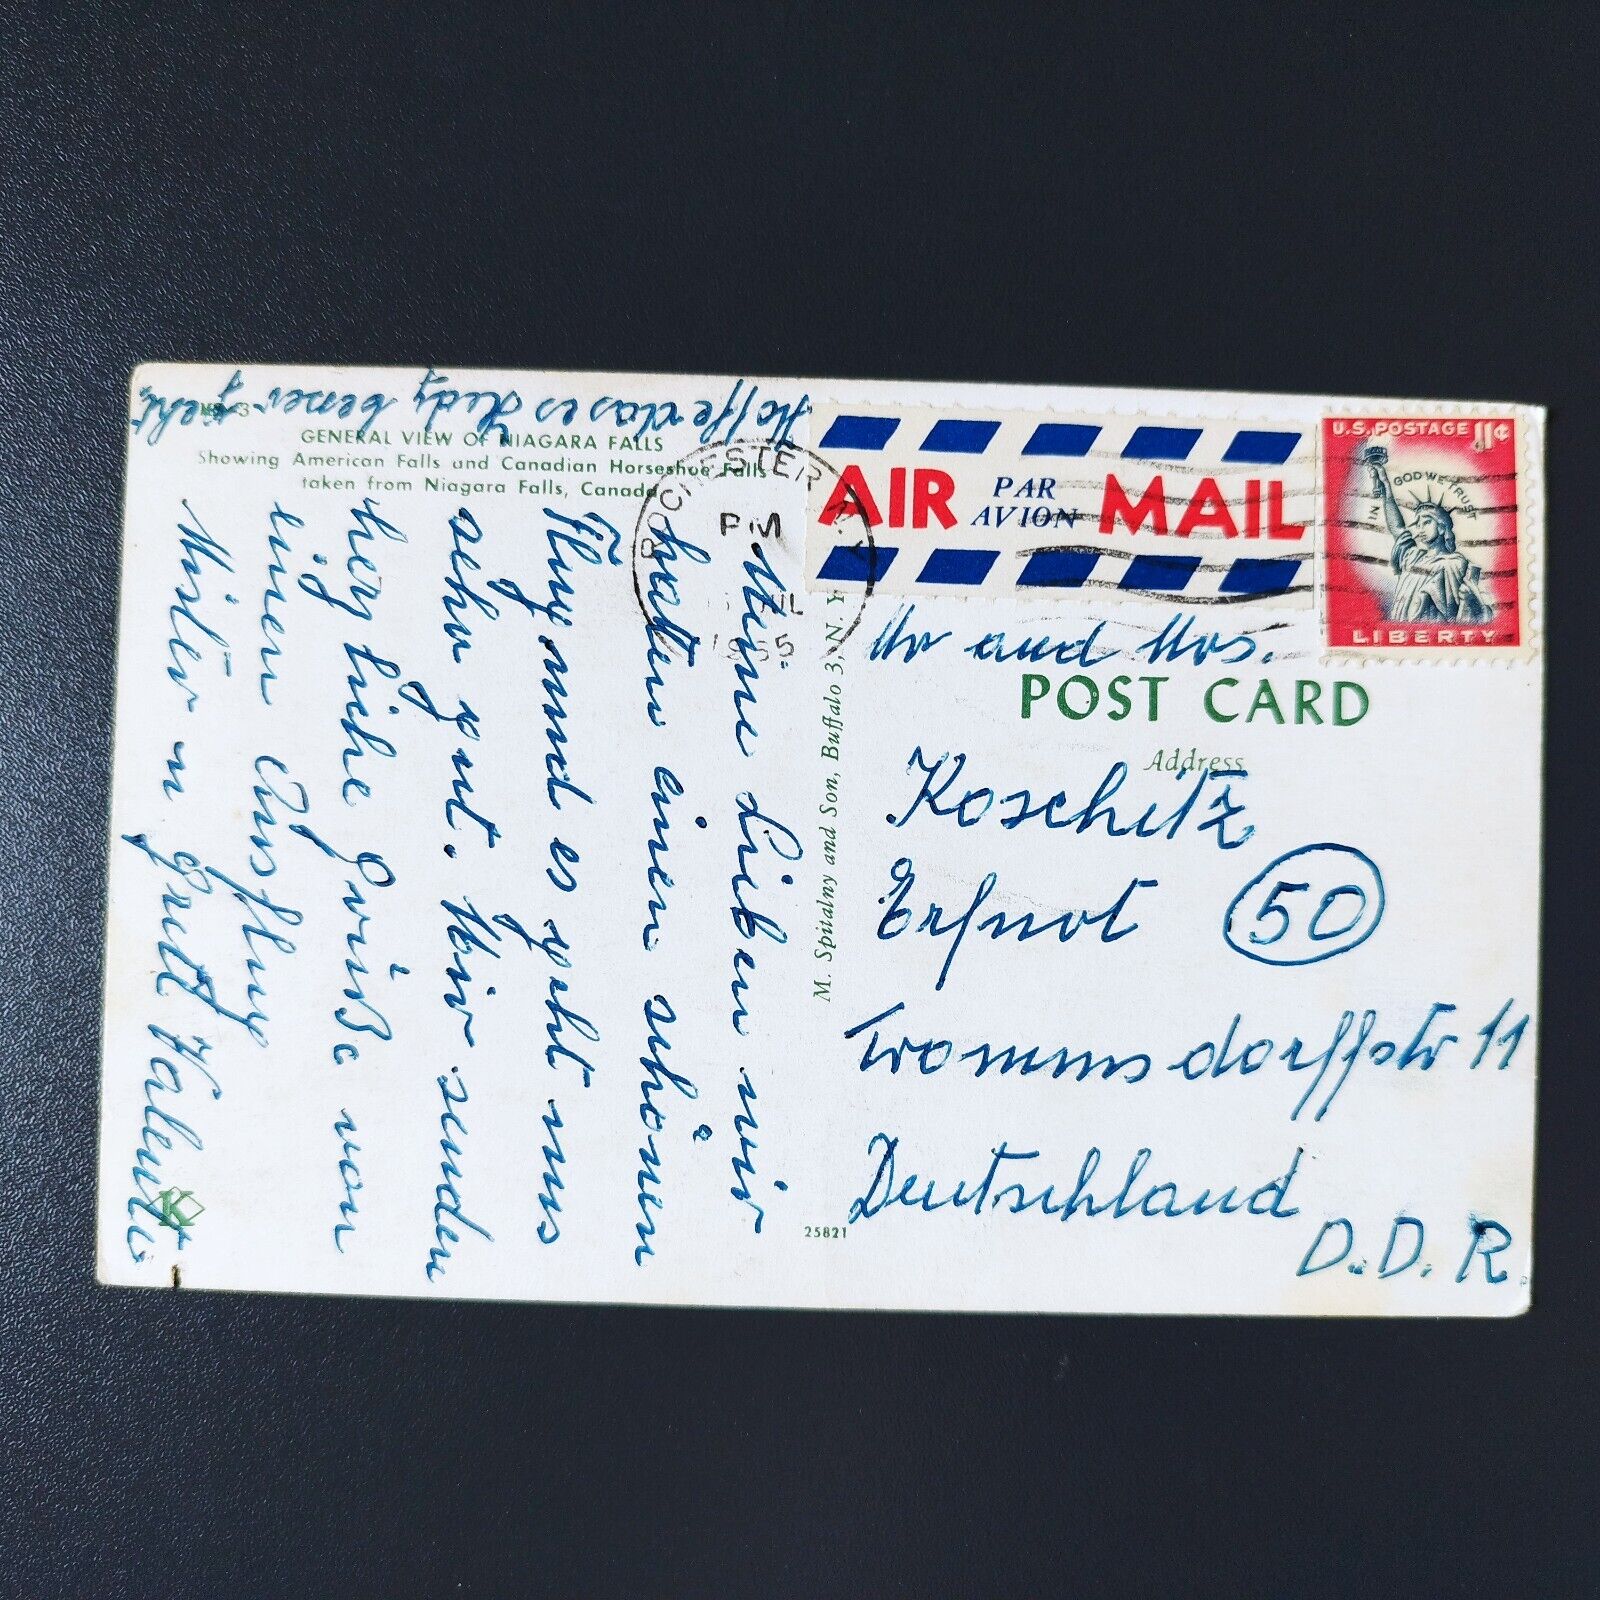 GENERAL VIEW OF NIAGARA FALLS
Showing American Falls and Canadian Horseshoe Falls
taken from Niagara Falls, Canada
Meine Lieben wir
hatten einen schönen
Flug und es geht uns
sehr gut. Wir senden
herzliche Grüße von
einen Ausflug
Hoffe das es Hedy besser
geht.
M. Spitalny and Son, Buffalo 3, N. Y.
25821
K
ROCHESTER N.Y.
PM
AIR MAIL
PAR AVION
U.S. POSTAGE 11¢
IN GOD WE TRUST
LIBERTY
Mr and Mrs.
POST CARD
Address
Koschitz
Erfurt 50
Trommsdorffstr 11
Deutschland
D.D.R.